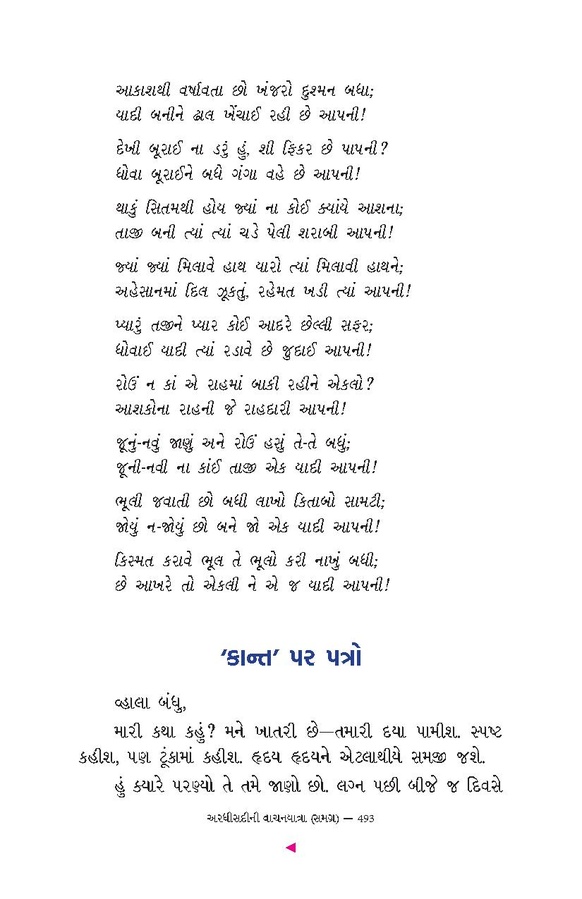 આકાશથી વર્ષાવતા છો ખંજરો દુશ્મન બધા;
યાદી બનીને ઢાલ ખેંચાઈ રહી છે આપની!
દેખી બૂરાઈ ના ડરું હું, શી ફિકર છે પાપની?
ધોવા બૂરાઈને બધે ગંગા વહે છે આપની!
થાકું સિતમથી હોય જ્યાં ના કોઈ ક્યાંયે આશના;
તાજી બની ત્યાં ત્યાં ચડે પેલી શરાબી આપની!
જ્યાં જ્યાં મિલાવે હાથ યારો ત્યાં મિલાવી હાથને;
અહેસાનમાં દિલ ઝૂકતું, રહેમત ખડી ત્યાં આપની!
પ્યારું તજીને પ્યાર કોઈ આદરે છેલ્લી સફર;
ધોવાઈ યાદી ત્યાં રડાવે છે જુદાઈ આપની!
રોઉં ન કાં એ રાહમાં બાકી રહીને એકલો?
આશકોના રાહની જે રાહદારી આપની!
જૂનું-નવું જાણું અને રોઉં હસું તે-તે બધું;
જૂની-નવી ના કાંઈ તાજી એક યાદી આપની!
ભૂલી જવાતી છો બધી લાખો કિતાબો સામટી;
જોયું ન-જોયું છો બને જો એક યાદી આપની!
કિસ્મત કરાવે ભૂલ તે ભૂલો કરી નાખું બધી;
છે આખરે તો એકલી ને એ જ યાદી આપની!
'કાન્ત' પર પત્રો
વ્હાલા બંધુ,
મારી કથા કહું? મને ખાતરી છે—તમારી દયા પામીશ. સ્પષ્ટ
કહીશ, પણ ટૂંકામાં કહીશ. હૃદય હૃદયને એટલાથીયે સમજી જશે.
હું ક્યારે પરણ્યો તે તમે જાણો છો. લગ્ન પછી બીજે જ દિવસે
અરધીસદીની વાચનયાત્રા (સમગ્ર) — 493